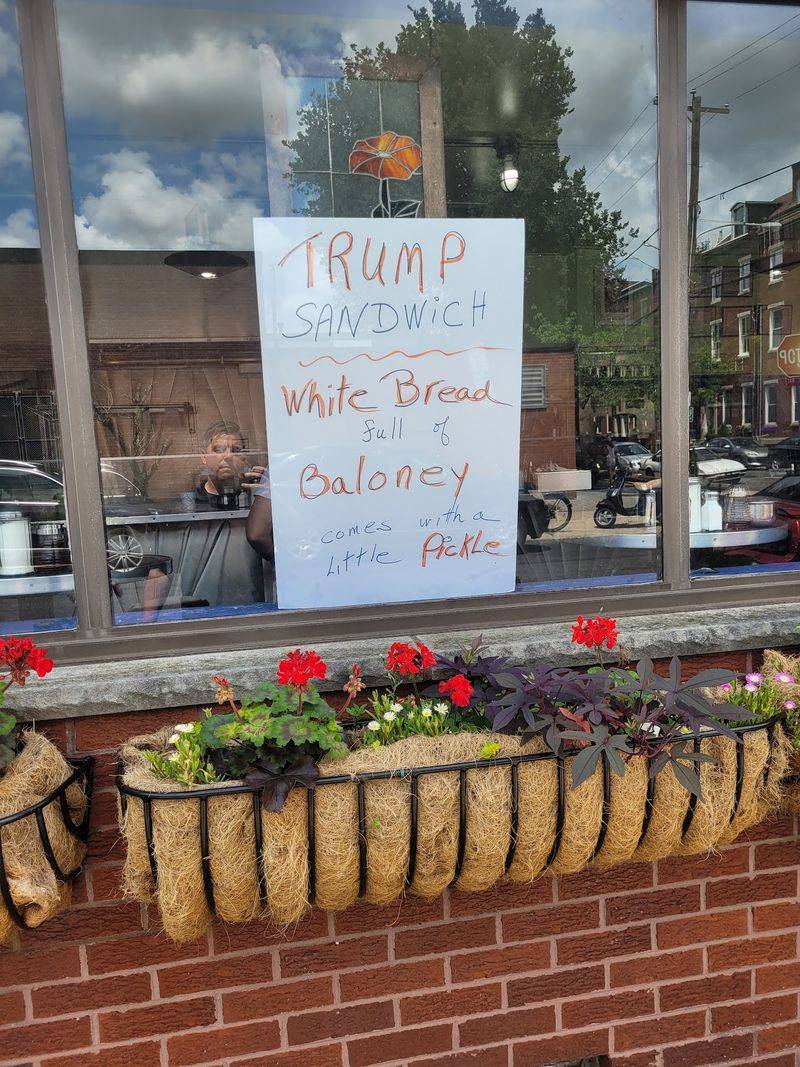 TRUMP
SANDWICH
White Bread
full of
Baloney
comes with a
Little Pickle
STOP